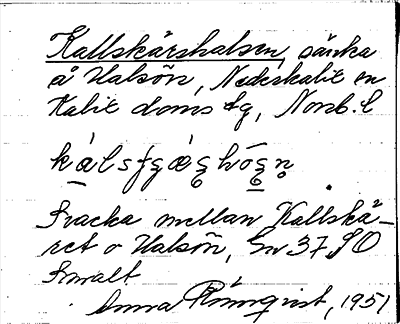 Kallskärshalsen, sänka
å Halsön, Nederkalix en
Kalix doms fg, Norrb. l
Svacka mellan Kallskä-
ret o Halsön, En 37 SO
Smalt
Anna Rönnqvist, 1951